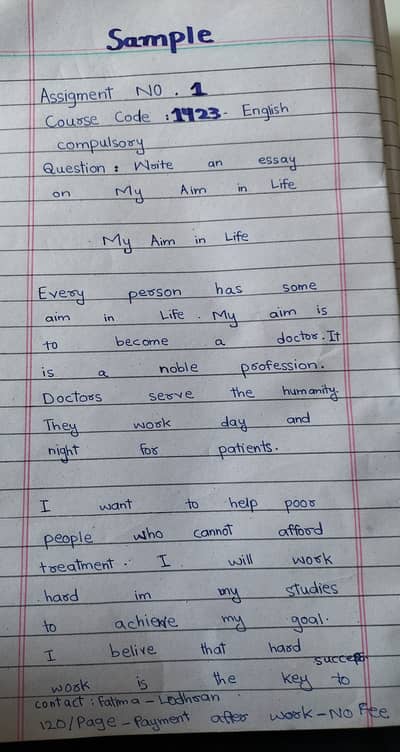 Sample
Assigment NO. 1
Course Code : 1423- English
compulsory
Question : Write an essay
on My Aim in Life
My Aim in Life
Every person has some
aim in Life. My aim is
to become a doctor. It
is a noble profession.
Doctors serve the humanity.
They work day and
night for patients.
I want to help poor
people who cannot afford
treatment. I will work
hard im my studies
to achieve my goal.
I belive that hard
work is the key to success
contact : Fatima - Lodhran
120/Page - Payment after work - NO Fee